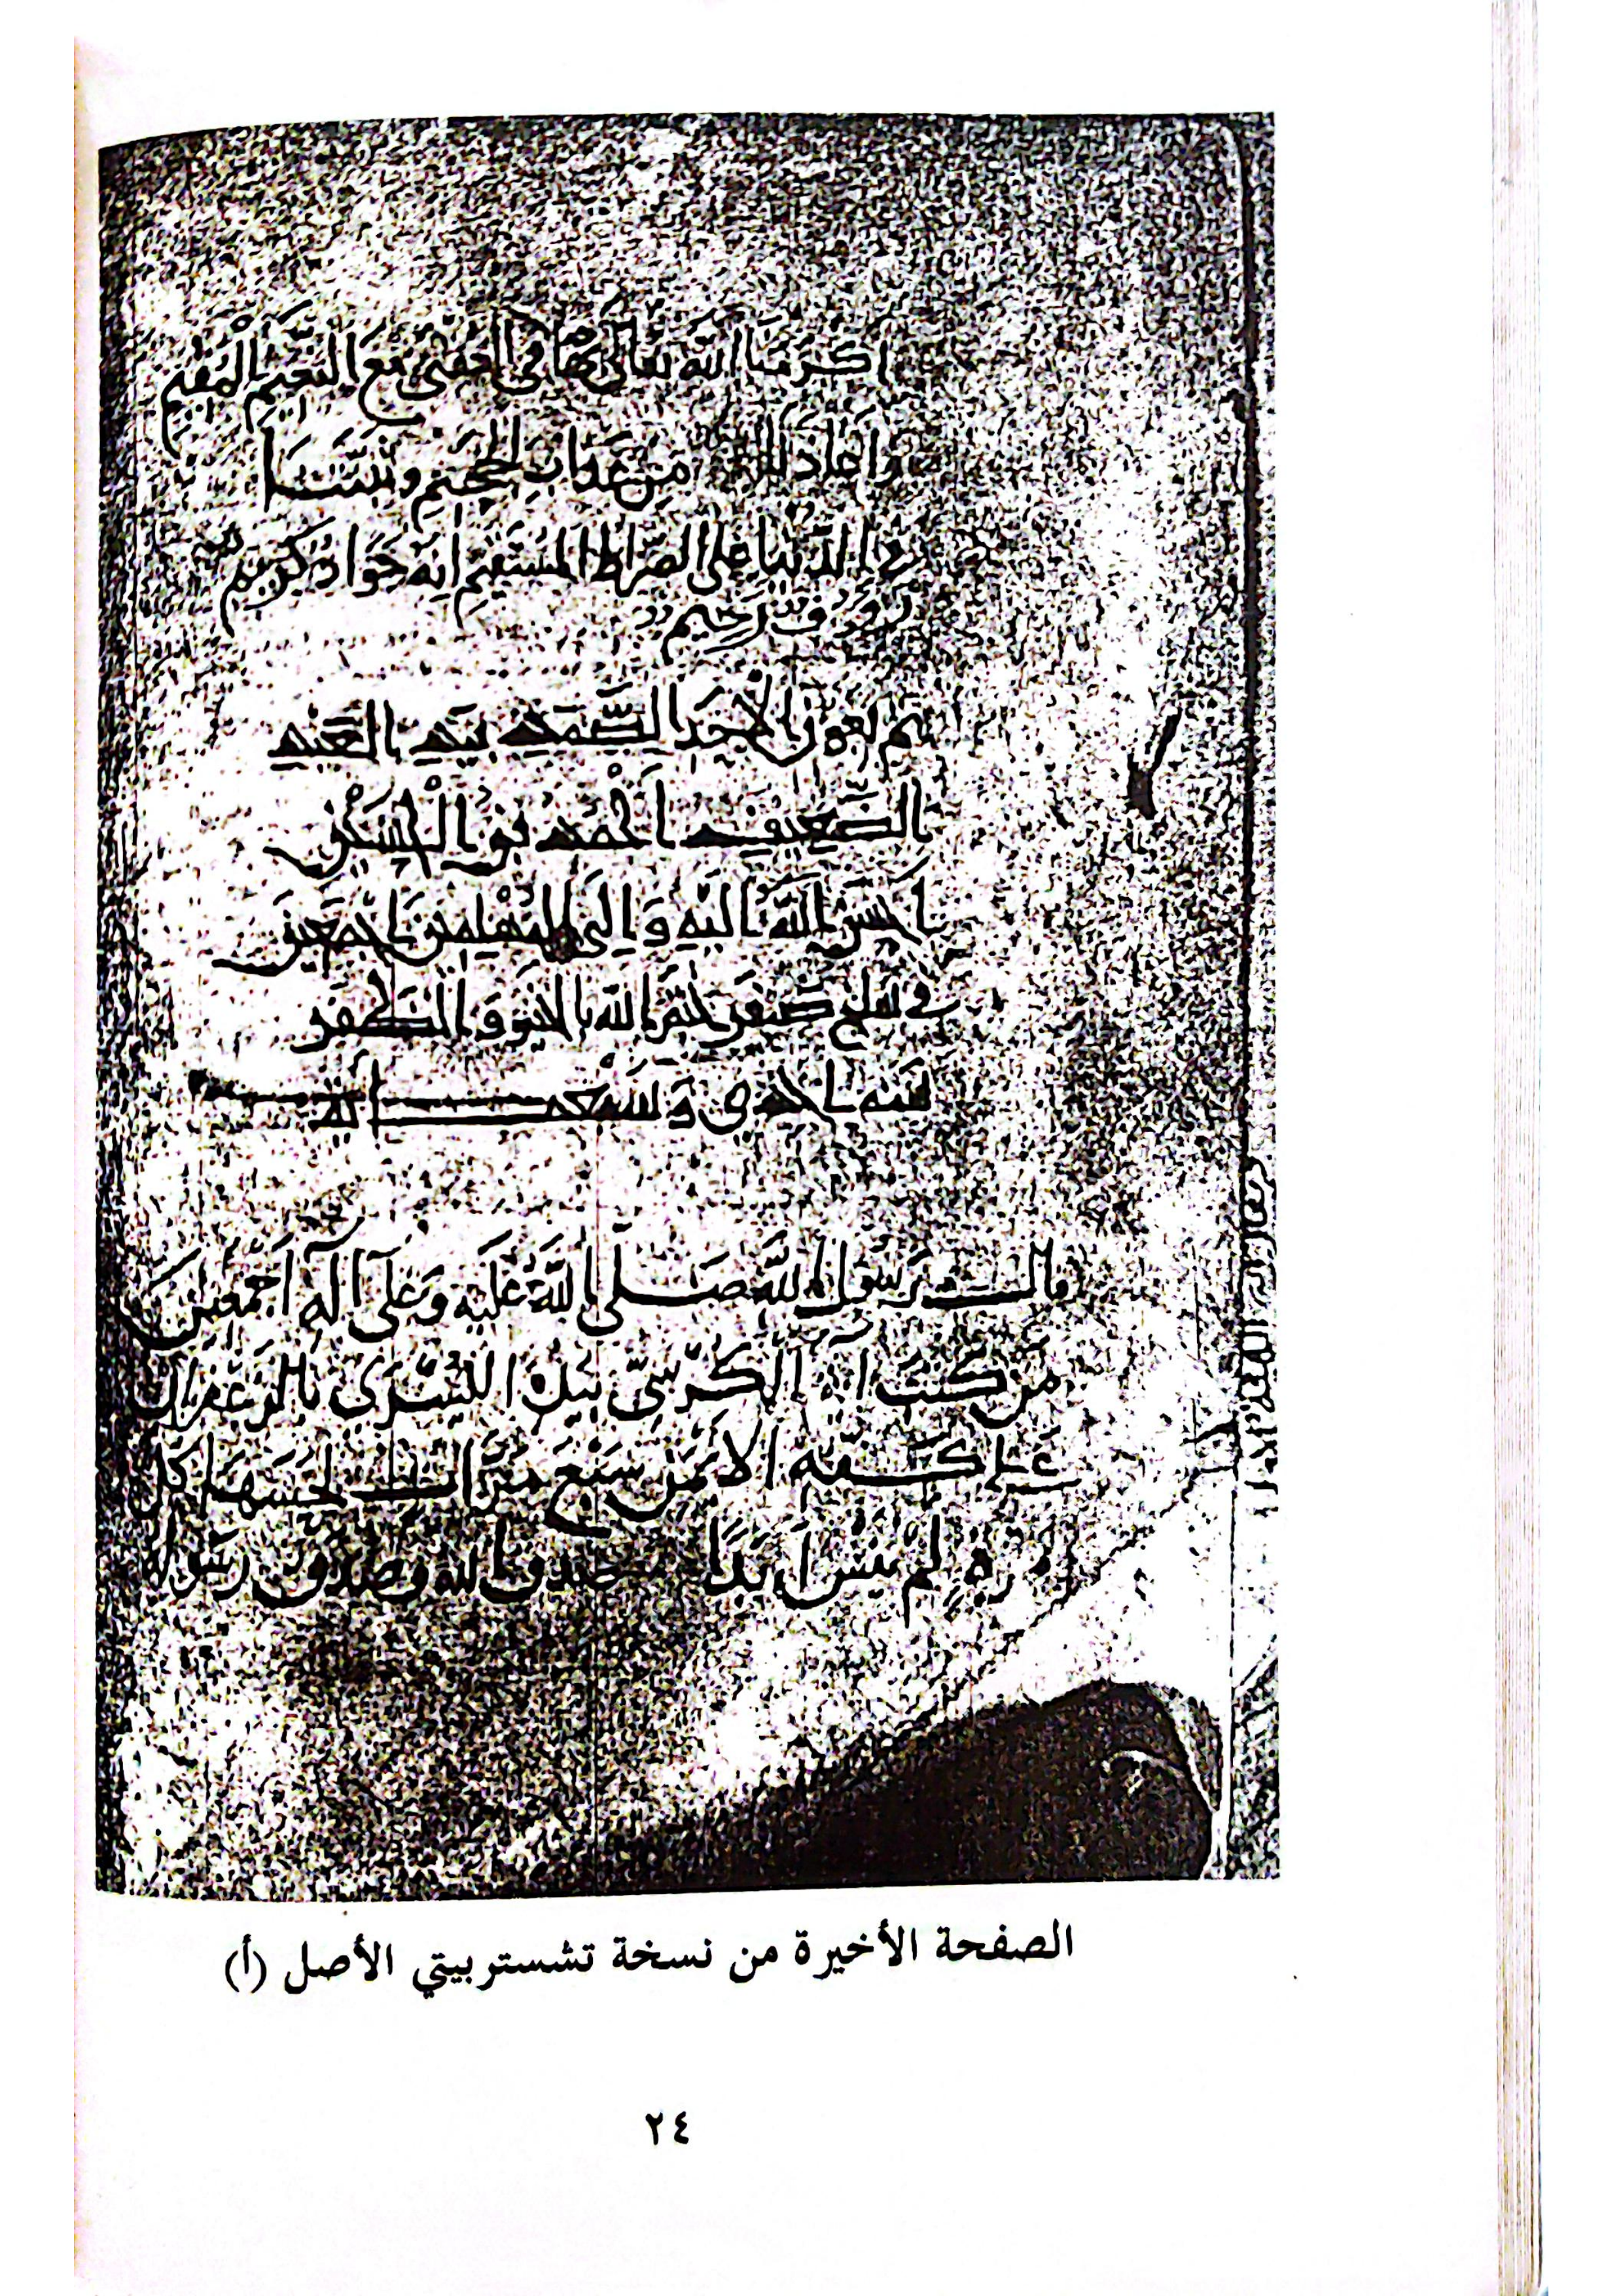 اكرمنا الله تعالى بها في العقبى مع النعيم المقيم
واعاذنا من عذاب الجحيم وثبتنا
في الدنيا على الصراط المستقيم انه جواد كريم
رووف رحيم
تم بعون الاحد الصمد بيد العبد
الضعيف احمد بن الحسين
احسن الله اليه والى المسلمين اجمعين
في سلخ صفر ختم الله بالخير والظفر
سنه احدى
قال رسول الله صلى الله عليه وعلى آله اجمعين
من كتب اية الكرسي بيده اليسرى بالزعفران
على كفه الايمن سبع مرات يلحسها كل
مرة لم ينس ابدا صدق الله وصدق رسوله
الصفحة الأخيرة من نسخة تشستربيتي الأصل (أ)
٢٤